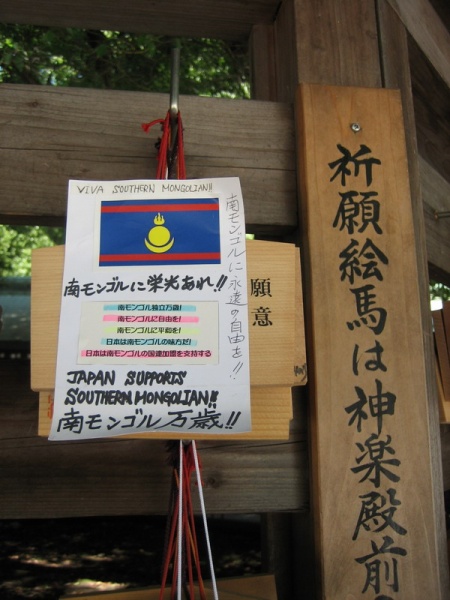 VIVA SOUTHERN MONGOLIAN!!
南モンゴルに永遠の自由を!!
南モンゴルに栄光あれ!!
南モンゴル独立万歳!
南モンゴルに自由を!
南モンゴルに平和を!
日本は南モンゴルの味方だ!
日本は南モンゴルの国連加盟を支持する
JAPAN SUPPORTS
SOUTHERN MONGOLIAN!!
南モンゴル万歳!!
願意
祈願絵馬は神楽殿前